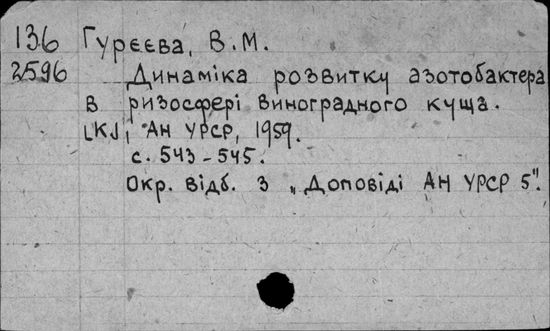 136 Гурєєва, В.М.
2596 Динаміка розвитку азотобактера
в ризосфері виноградного куща.
[К], АН УРСР, 1959.
с. 543-545.
Окр. відб. з „Доповіді АН УРСР 5".